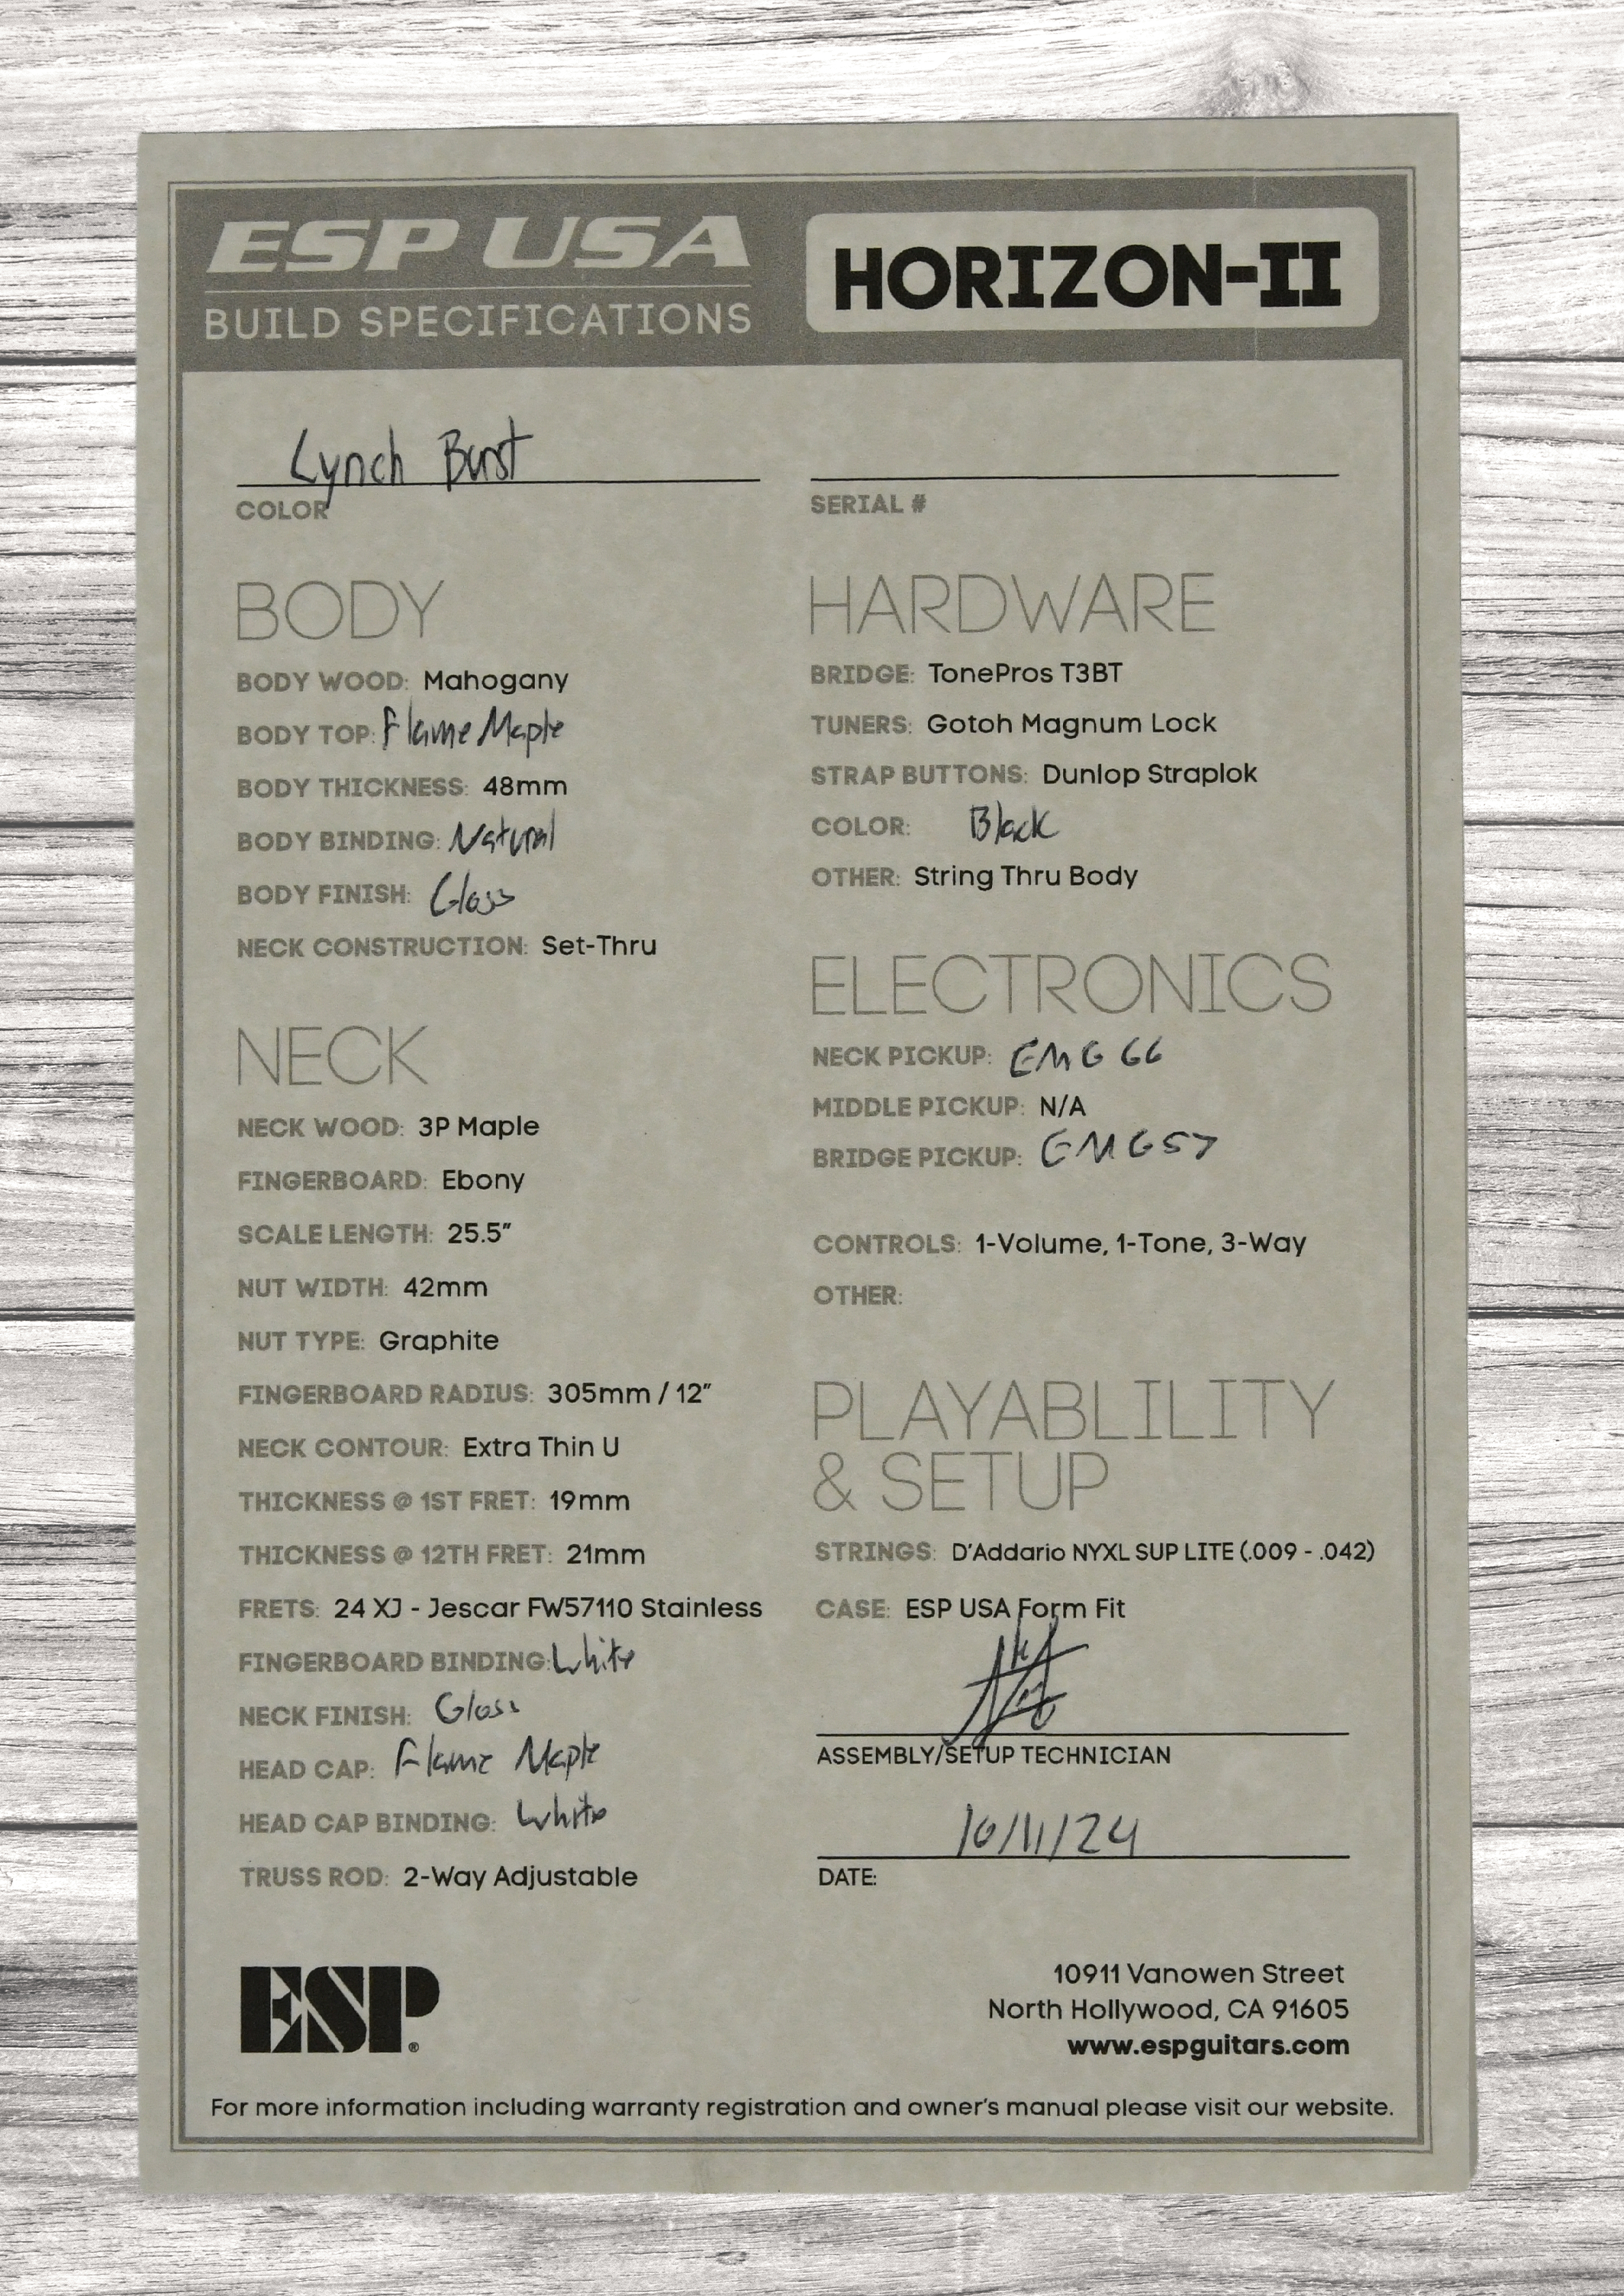 ESP USA
BUILD SPECIFICATIONS
HORIZON-II
Lynch Burst
COLOR
SERIAL #
BODY
BODY WOOD: Mahogany
BODY TOP: Flame Maple
BODY THICKNESS: 48mm
BODY BINDING: Natural
BODY FINISH: Gloss
NECK CONSTRUCTION: Set-Thru
NECK
NECK WOOD: 3P Maple
FINGERBOARD: Ebony
SCALE LENGTH: 25.5"
NUT WIDTH: 42mm
NUT TYPE: Graphite
FINGERBOARD RADIUS: 305mm / 12"
NECK CONTOUR: Extra Thin U
THICKNESS @ 1ST FRET: 19mm
THICKNESS @ 12TH FRET: 21mm
FRETS: 24 XJ - Jescar FW57110 Stainless
FINGERBOARD BINDING: White
NECK FINISH: Gloss
HEAD CAP: Flame Maple
HEAD CAP BINDING: White
TRUSS ROD: 2-Way Adjustable
HARDWARE
BRIDGE: TonePros T3BT
TUNERS: Gotoh Magnum Lock
STRAP BUTTONS: Dunlop Straplok
COLOR: Black
OTHER: String Thru Body
ELECTRONICS
NECK PICKUP: EMG 66
MIDDLE PICKUP: N/A
BRIDGE PICKUP: EMG 57
CONTROLS: 1-Volume, 1-Tone, 3-Way
OTHER:
PLAYABLILITY
& SETUP
STRINGS: D'Addario NYXL SUP LITE (.009 - .042)
CASE: ESP USA Form Fit
ASSEMBLY/SETUP TECHNICIAN
10/11/24
DATE:
ESP®
10911 Vanowen Street
North Hollywood, CA 91605
www.espguitars.com
For more information including warranty registration and owner's manual please visit our website.